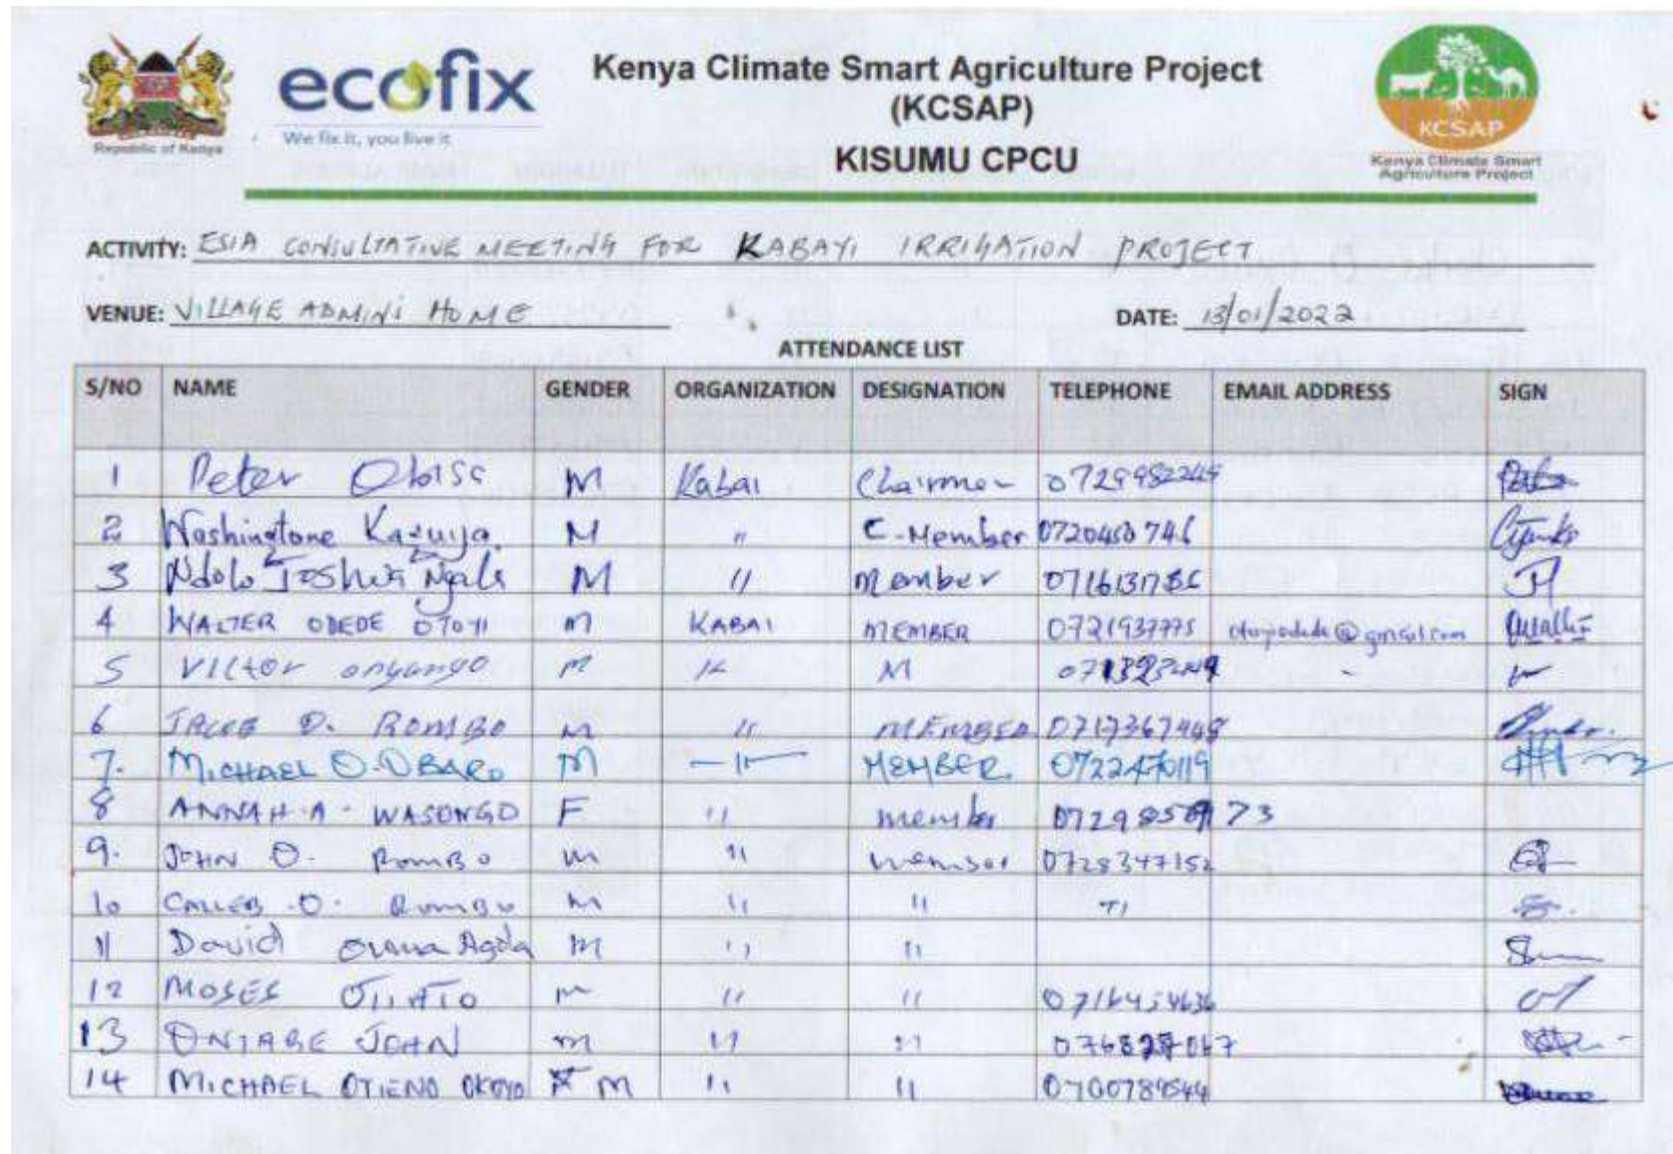 Republic of Kenya
ecofix
We fix it, you live it
Kenya Climate Smart Agriculture Project
(KCSAP)
KISUMU CPCU
KCSAP
Kenya Climate Smart
Agriculture Project
ACTIVITY: ESIA CONSULTATIVE MEETING FOR KABAYI IRRIGATION PROJECT
VENUE: VILLAGE ADMINI HOME DATE: 13/01/2022
ATTENDANCE LIST
S/NO NAME GENDER ORGANIZATION DESIGNATION TELEPHONE EMAIL ADDRESS SIGN
1 Peter M Kabai Chairman
2 Washingtone M " C-Member
3 Ndolo Joshua Ngala M " Member
4 WALTER ODEDE OTOYI M KABAI MEMBER 0721937775
5 Victor onyango M M
6 D. ROMBO M " MEMBER 0717367448
7. MICHAEL O. OBARO M -"- MEMBER 0722470119
8 ANNAH A. WASONGO F " member
9. JOHN O. Rombo M " member 0728347152
10 CALLEB O. Rombo M " " "
11 David M " "
12 MOSES M " "
13 JOHN M " "
14 MICHAEL OTIENO OKOYO M " "